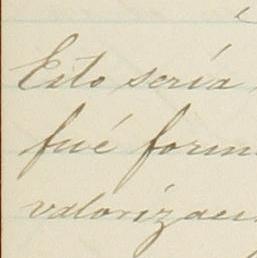 Esto sería
fué form
valorizaci